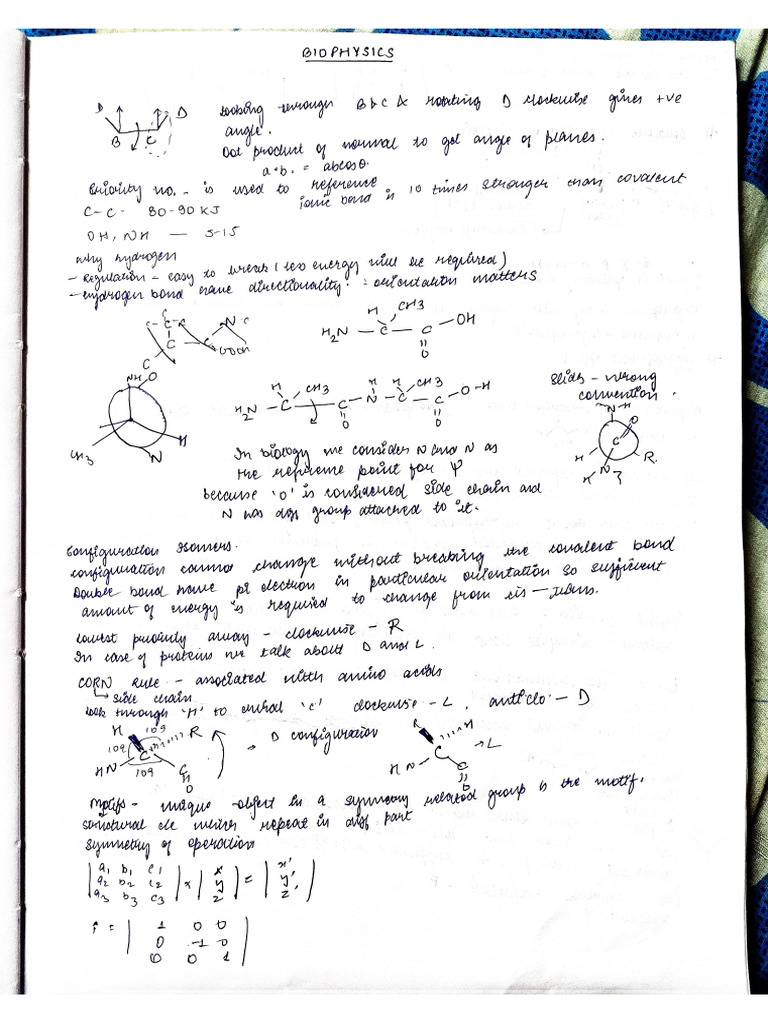 BIOPHYSICS
D D
B C
Looking through B & C & rotating D clockwise gives +ve
angle.
Dot product of normal to get angle of planes.
a·b· = abcosθ.
Priority no. - is used to reference
ionic bond is 10 times stronger than covalent
C-C- 80-90 KJ
OH, NH — 5-15
Why hydrogen
- Regulation - easy to break (less energy will be required)
- Hydrogen bond have directionality: orientation matters
H CH3
H2N - C - C - OH
O
H CH3 H H CH3
H2N - C - C - N - C - C - O-H
O O
NH O
H
CH3 N
Slides - wrong
convention.
N H O
C
H R
H N
In biology we consider N and N as
the reference point for ψ
because 'O' is considered side chain and
N has diff group attached to it.
Configuration Isomers.
configuration cannot change without breaking the covalent bond
Double bond have pi electron in particular orientation so sufficient
amount of energy is required to change from cis - trans.
Lowest priority away - clockwise - R
In case of proteins we talk about D and L.
CORN Rule - associated with amino acids
side chain
look through 'H' to 'C' clockwise - L, anticlo - D
H 109 R
109 C
HN 109 C
O
→ D configuration
H
C → L
HN C
O
Motifs - unique object in a symmetry related group is the motif.
structural repeat in diff part
symmetry of operation
| a1 b1 c1 | | x | | x' |
| a2 b2 c2 | x | y | = | y' |
| a3 b3 c3 | | z | | z' |
i = | 1 0 0 |
| 0 -1 0 |
| 0 0 1 |